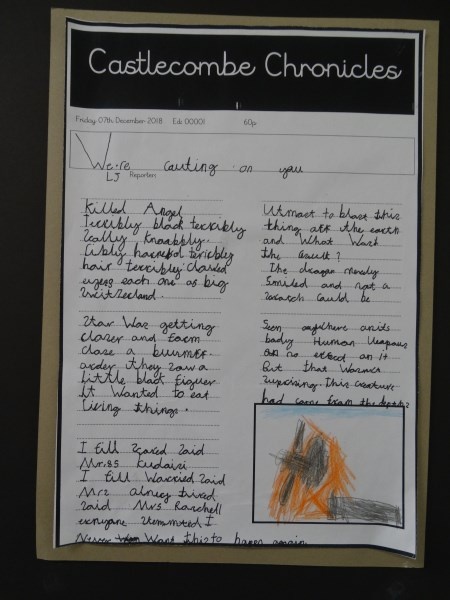 Castlecombe Chronicles
Friday 07th December 2018 Edi 00001 60p
We're cauting on you
LJ Reporters
Killed Angel
Terribly black terribly
Really knobbly.
terribly
hair terribly clawed
each one as big
Switzerland.
Star Was getting
closer and
close a
they saw a
little black figuer
It Wanted to eat
living things.
I fill scared said
Mr.ss
I fill Warried said
Mrs tired
said Mrs
I
Never Want this to happen again
Utmost to blast this
thing off the earth
and What Was
the result?
The dragon merely
Smiled and not a
scratch could be
Seen anywhere on its
body Human Weapons
no effect on it
But that Wasn't
surprising. This creature
had come from the depths